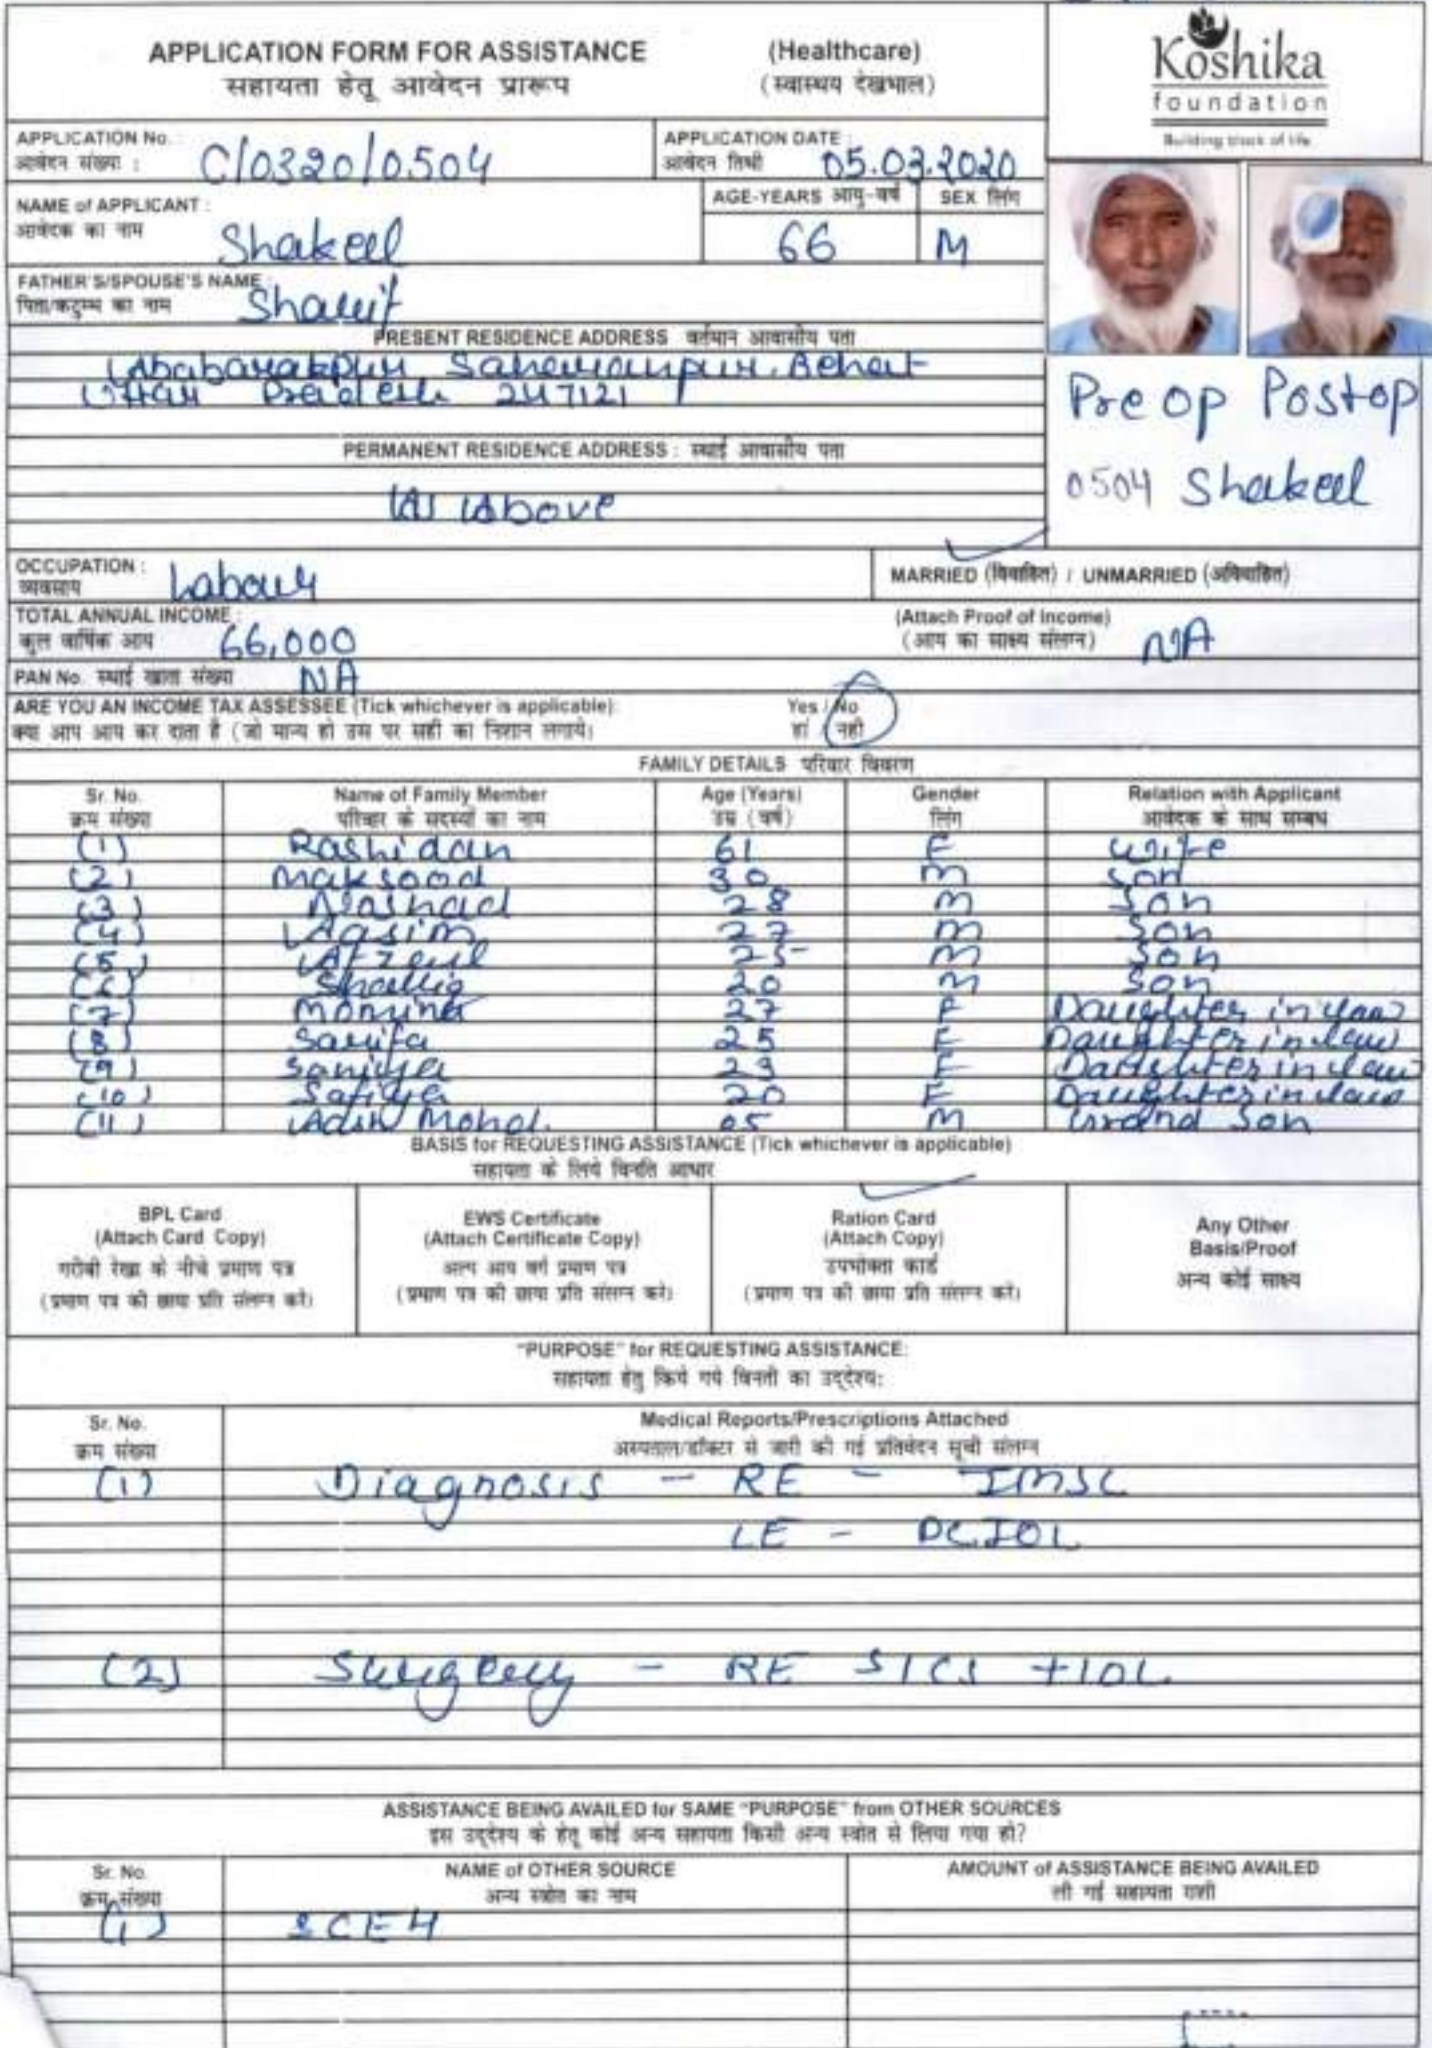 APPLICATION FORM FOR ASSISTANCE (Healthcare)
सहायता हेतू आवेदन प्रारूप (स्वास्थय देखभाल)
Koshika
foundation
Building block of life
APPLICATION No. :
आवेदन संख्या : C/0320/0504
APPLICATION DATE :
आवेदन तिथी 05.03.2020
NAME of APPLICANT :
आवेदक का नाम Shakeel
AGE-YEARS आयु-वर्ष 66
SEX लिंग M
FATHER'S/SPOUSE'S NAME :
पिता/कटुम्ब का नाम Sharif
PRESENT RESIDENCE ADDRESS वर्तमान आवासीय पता
Saharanpur, Behat
Uttar Pradesh 247121
Pre op Postop
0504 Shakeel
PERMANENT RESIDENCE ADDRESS : स्थाई आवासीय पता
As Above
OCCUPATION :
व्यवसाय Labour
MARRIED (विवाहित) / UNMARRIED (अविवाहित)
TOTAL ANNUAL INCOME :
कुल वार्षिक आय 66,000
(Attach Proof of Income)
(आय का साक्ष्य संलग्न) NA
PAN No. स्थाई खाता संख्या NA
ARE YOU AN INCOME TAX ASSESSEE (Tick whichever is applicable): Yes / No
क्या आप आय कर दाता है (जो मान्य हो उस पर सही का निशान लगाये। हां / नही
FAMILY DETAILS परिवार विवरण
Sr. No. Name of Family Member Age (Years) Gender Relation with Applicant
क्रम संख्या परिवार के सदस्यों का नाम उम्र (वर्ष) लिंग आवेदक के साथ सम्बध
(1) Rashidan 61 F wife
(2) Maksood 30 M Son
(3) 28 M Son
(4) Aasim 27 M Son
(5) 25 M Son
(6) 20 M Son
(7) 27 F Daughter in law
(8) Sarifa 25 F Daughter in law
(9) Saniya 23 F Daughter in law
(10) Safiya 20 F Daughter in law
(11) Mohd. 05 M Grand Son
BASIS for REQUESTING ASSISTANCE (Tick whichever is applicable)
सहायता के लिये विनति आधार
BPL Card
(Attach Card Copy)
गरीबी रेखा के नीचे प्रमाण पत्र
(प्रमाण पत्र की छाया प्रति संलग्न करे)
EWS Certificate
(Attach Certificate Copy)
अल्प आय वर्ग प्रमाण पत्र
(प्रमाण पत्र की छाया प्रति संलग्न करे)
Ration Card
(Attach Copy)
उपभोक्ता कार्ड
(प्रमाण पत्र की छाया प्रति संलग्न करे)
Any Other
Basis/Proof
अन्य कोई साक्ष्य
"PURPOSE" for REQUESTING ASSISTANCE:
सहायता हेतु किये गये विनती का उद्देश्य:
Sr. No. Medical Reports/Prescriptions Attached
क्रम संख्या अस्पताल/डॉक्टर से जारी की गई प्रतिवेदन सूची संलग्न
(1) Diagnosis - RE - IMSC
LE - PCIOL
(2) Surgery - RE SICS + IOL
ASSISTANCE BEING AVAILED for SAME "PURPOSE" from OTHER SOURCES
इस उद्देश्य के हेतू कोई अन्य सहायता किसी अन्य स्त्रोत से लिया गया हो?
Sr. No. NAME of OTHER SOURCE AMOUNT of ASSISTANCE BEING AVAILED
क्रम संख्या अन्य स्त्रोत का नाम ली गई सहायता राशी
(1) SCEH